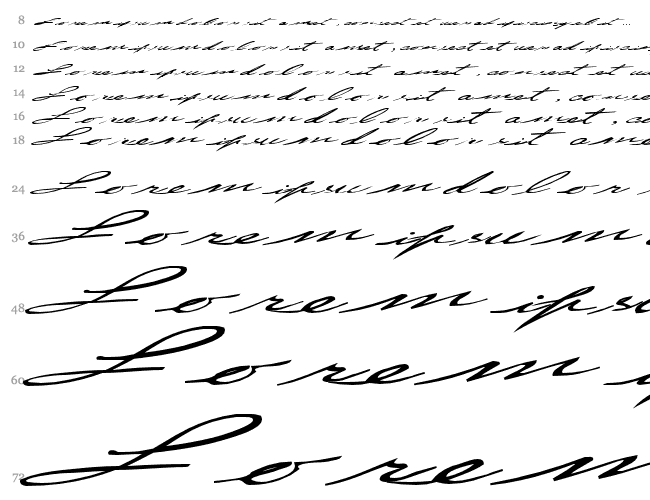 8 Lorem ipsum dolor sit amet, consectetuer adipiscing elit ...
10 Lorem ipsum dolor sit amet, consectetuer adipiscin
12 Lorem ipsum dolor sit amet, consectetu
14 Lorem ipsum dolor sit amet, conse
16 Lorem ipsum dolor sit amet, co
18 Lorem ipsum dolor sit ame
24 Lorem ipsum dolor
36 Lorem ipsum
48 Lorem ips
60 Lorem
72 Lorem